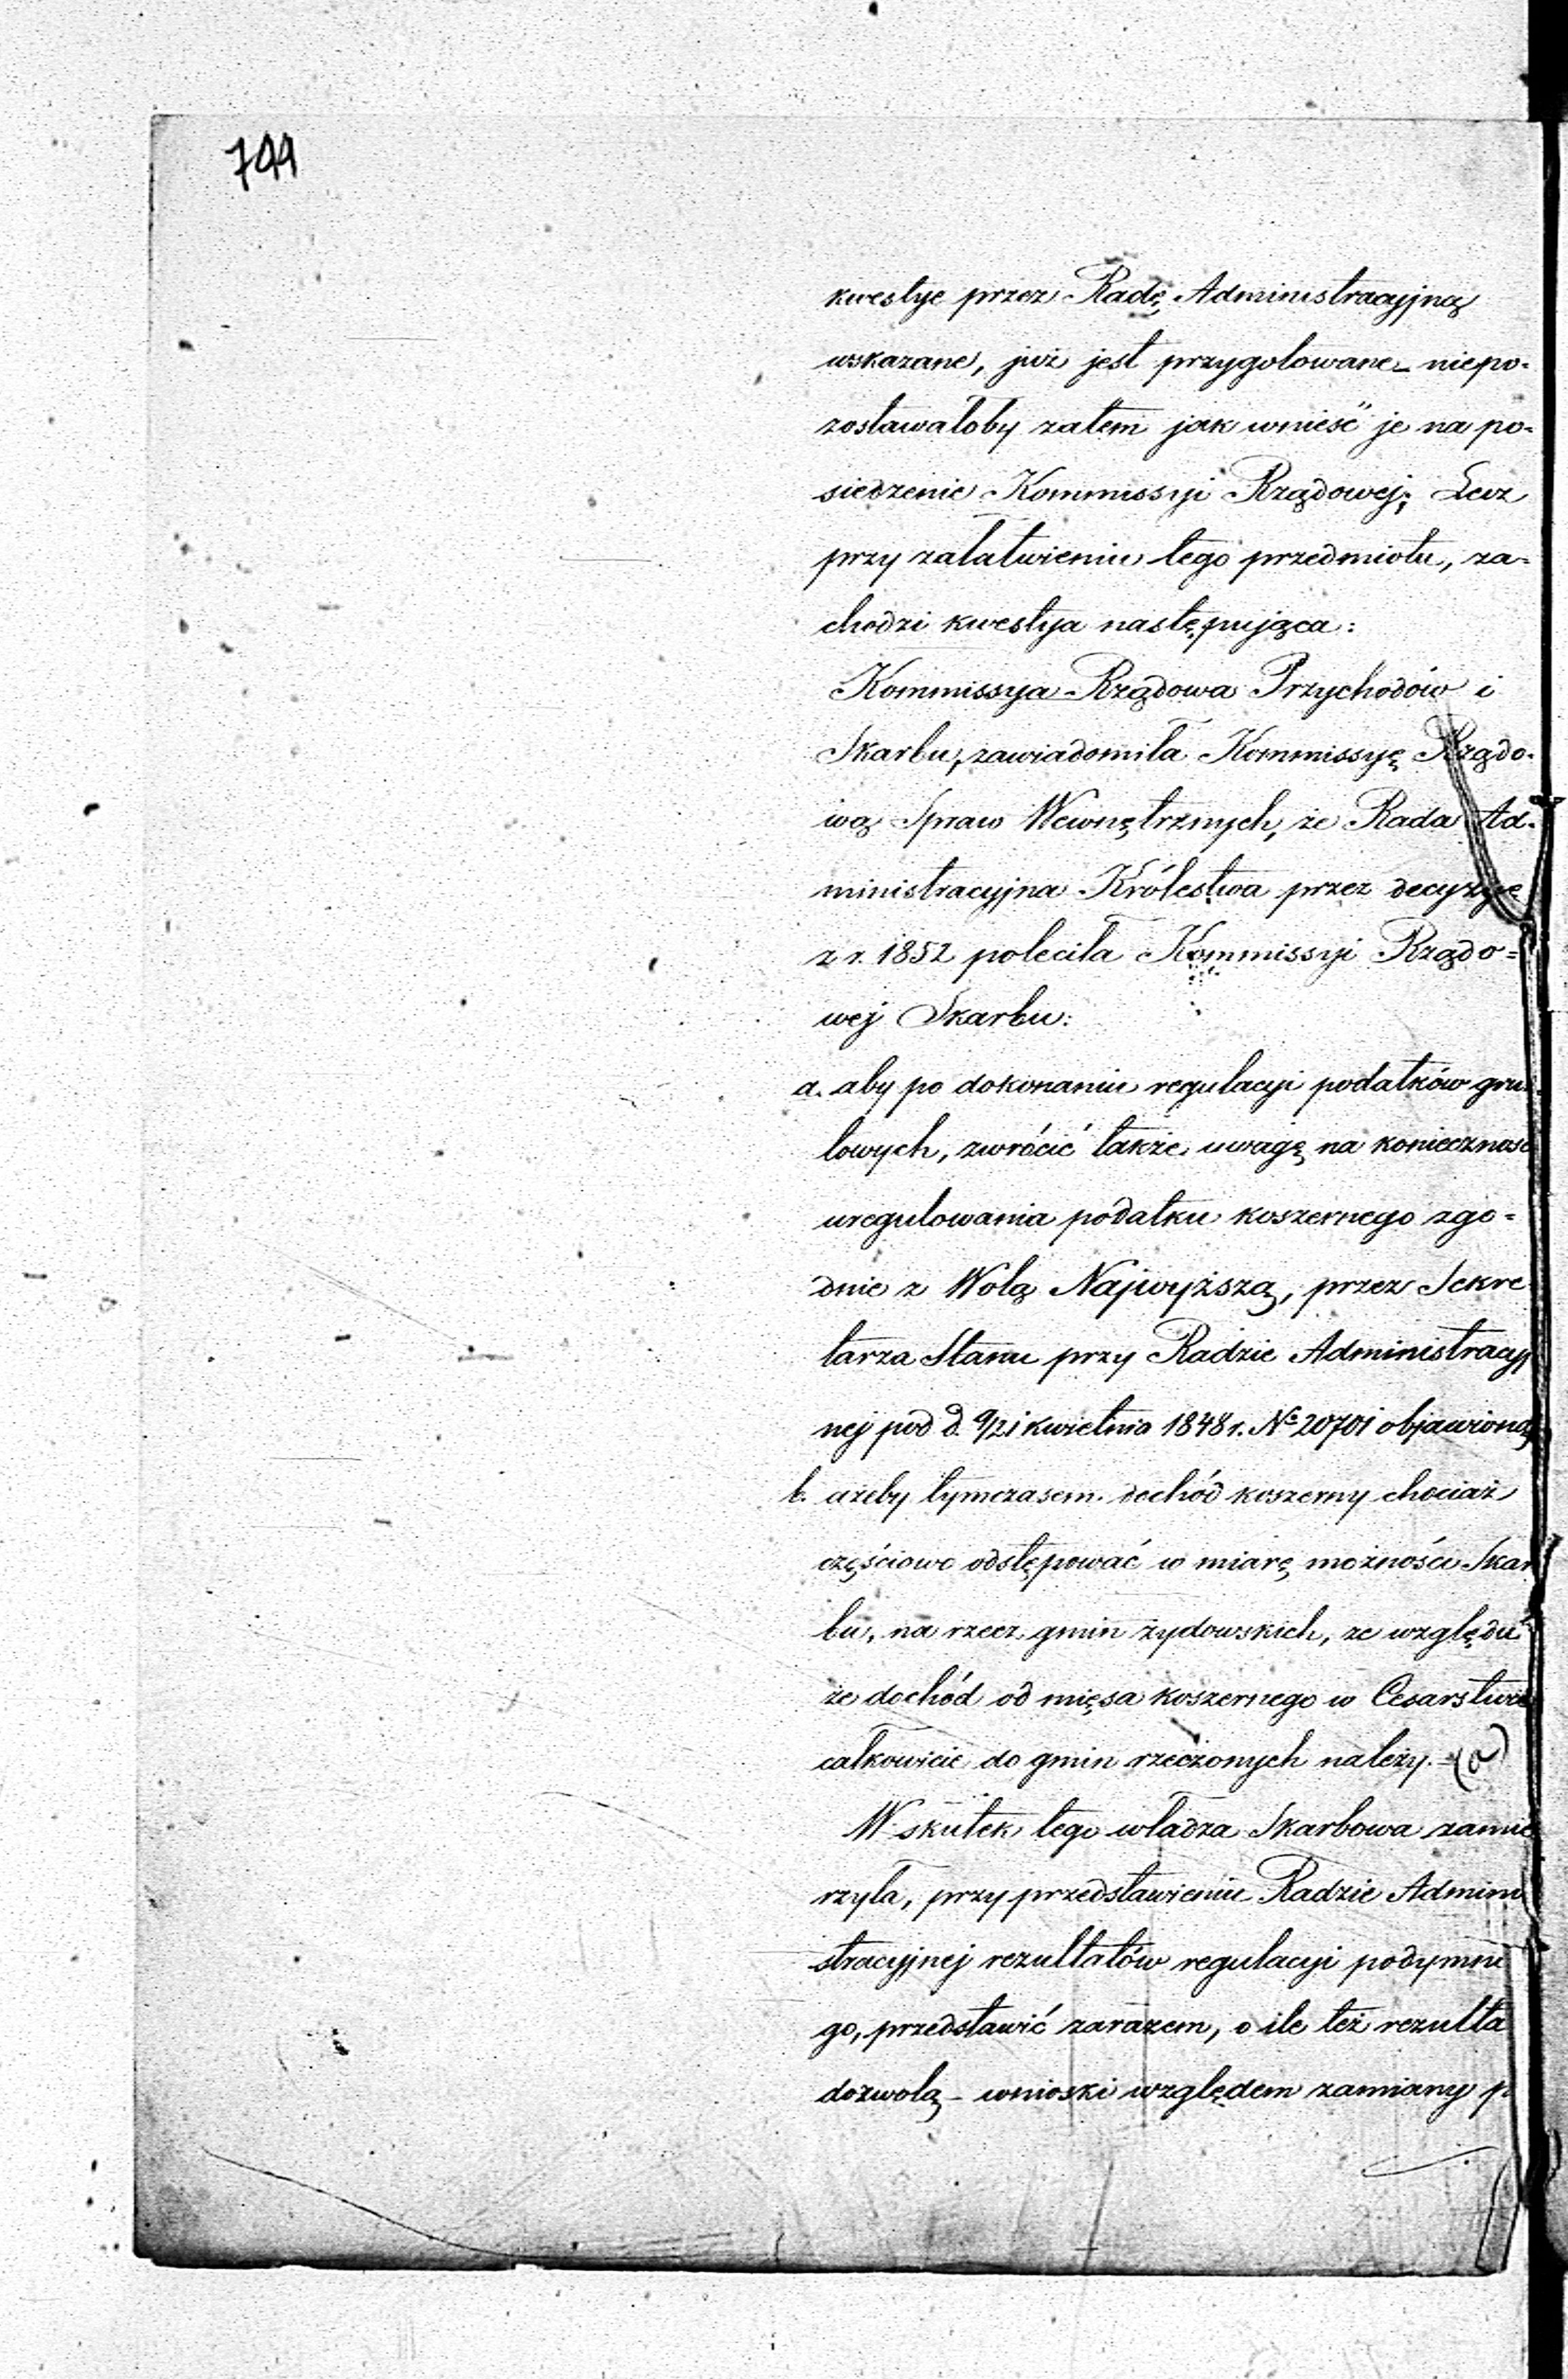 744
kwestye przez Radę Administracyjną
wskazane, już jest przygotowane – niepo-
zostawałoby zatem jak wnieść je na po-
siedzenie Kommissyi Rządowej; Lecz
przy załatwieniu tego przedmiotu, za-
chodzi kwestya następująca:
Kommissya Rządowa Przychodów i
Skarbu, zawiadomiła Kommissyę Rządo-
wą Spraw Wewnętrznych, że Rada Ad-
ministracyjna Królestwa przez decyzye
z r. 1852 poleciła Kommissyi Rządo=
wej Skarbu:
a. aby po dokonaniu regulacyi podatków grun
towych, zwrócić także uwagę na konieczność
uregulowania podatku koszernego zgo=
dnie z Wolą Najwyższą, przez Sekre
tarza Stanu przy Radzie Administracyj
nej pod d. 9/21 kwietnia 1848 r. № 20701 objawioną
b. ażeby tymczasem dochód koszerny chociaż
częściowo odstępować w miarę możności Skar
bu, na rzecz gmin żydowskich, ze względu
że dochód od mięsa koszernego w Cesarstwie
całkowicie do gmin rzeczonych należy. = (a)
W skutek tego władza Skarbowa zamie
rzyła, przy przedstawieniu Radzie Admini
stracyjnej rezultatów regulacyi podymne
go, przedstawić zarazem, o ile też rezulta
dozwolą – wnioski względem zamiany p